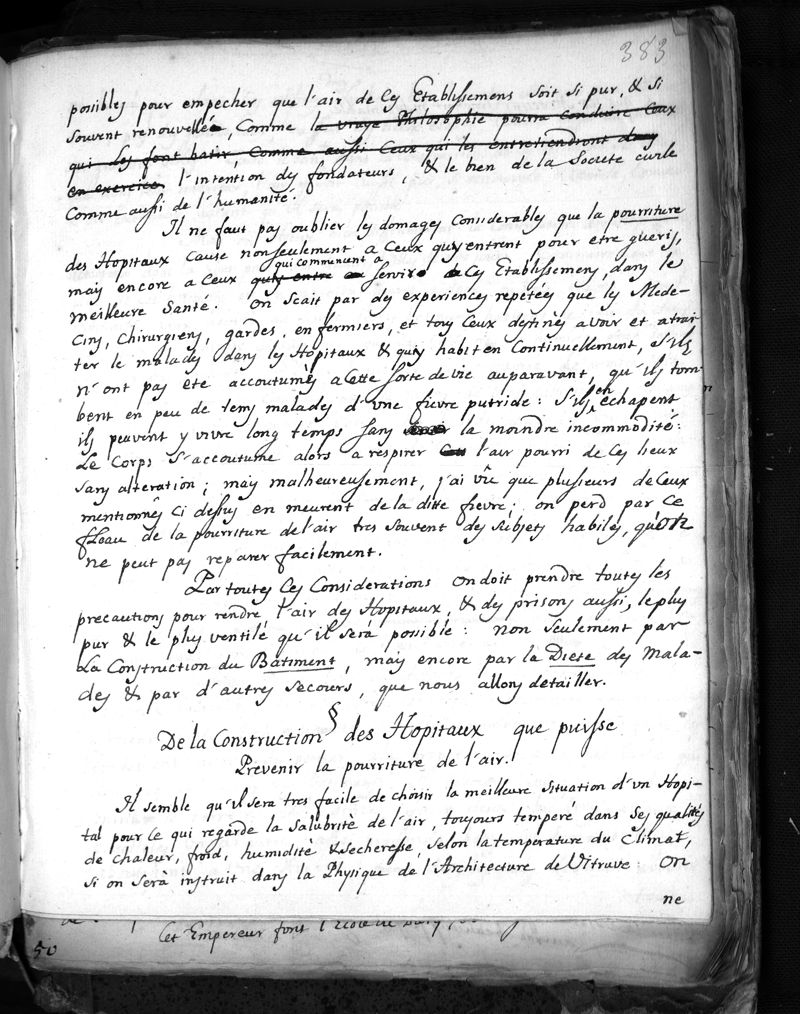 383
possibles pour empecher que l'air de Ces Etablissemens soit si pur, & si
souvent renouvellée, Comme la vraye Philosophie pourra conduire Ceux
qui les font batir Comme aussi Ceux qui les entretiendront dans
en exercice, l'intention des fondateurs, & le bien de la Societe
Comme aussi de l'humanité.
Il ne faut pas oublier les domages Considerables que la pourriture
des Hopitaux Cause non seulement a Ceux quy entrent pour etre gueris,
qui commencent a
mais encore a Ceux quis entre servir a Ces Etablissemens, dans le
meilleure Santé. On scait par des experiences repetées que les Mede-
cins, Chirurgiens, gardes, enfermiers, et tous Ceux destinés a voir et atrai-
ter le malades dans les Hopitaux & quis habiten Continuellement, s'ils
n'ont pas ete accoutumés a Cette sorte de vie auparavant, qu'ils tom-
bent en peu de tems malades d'une fievre putride: s'ils en echapent
ils peuvent y vivre long temps sans la moindre incommodité:
Le Corps s'accoutume alors a respirer l'air pourri de Ces lieux
sans alteration; mais malheureusement, j'ai vû que plusieurs de Ceux
mentionnés Ci dessus en meurent de la ditte fievre; on perd par Ce
fleau de la pourriture de l'air tres souvent des subjets habiles, qu'on
ne peut pas reparer facilement.
Par toutes Ces Considerations on doit prendre toutes les
precautions pour rendre l'air des Hopitaux, & des prisons aussi, le plus
pur & le plus ventilé qu'il serà possible: non seulement par
La Construction du Batiment, mais encore par la Diete des Mala-
des & par d'autres secours, que nous allons detailler.
§
De la Construction des Hopitaux que puisse
Prevenir la pourriture de l'air.
Il semble qu'il sera tres facile de choisir la meilleure situation d'un Hopi-
tal pour Ce qui regarde la salubrité de l'air, toujours temperé dans ses qualités
de chaleur, froid, humidité & secheresse, selon la temperature du Climat,
si on serà instruit dans la Physique de l'Architecture de Vitruve: On
ne
Cet Empereur font l'
50